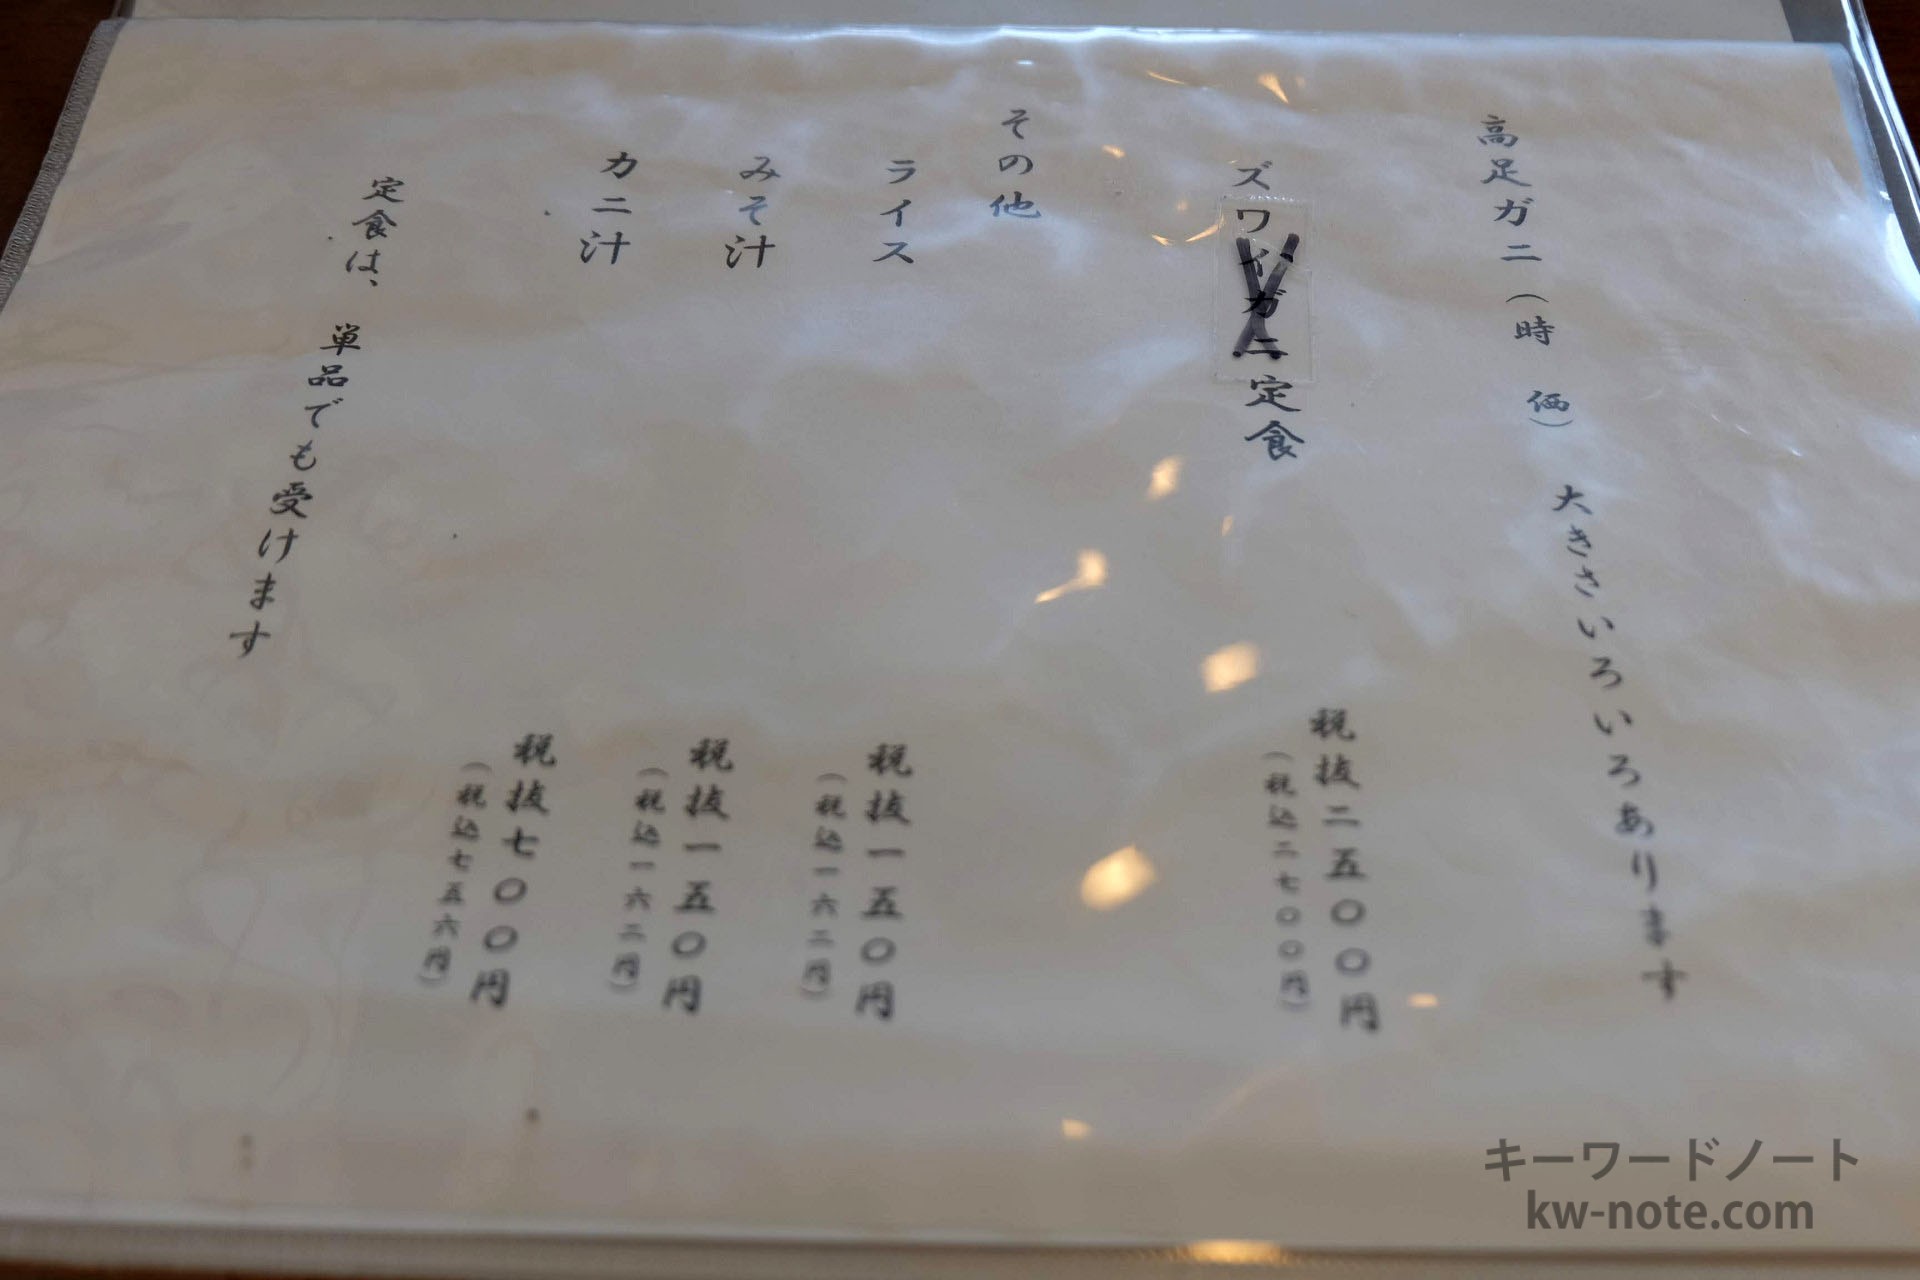 高足ガニ（時　価）　大きさいろいろあります
ズワイガニ定食
税抜二五〇〇円
（税込二七〇〇円）
その他
ライス
税抜一五〇円
（税込一六二円）
みそ汁
税抜一五〇円
（税込一六二円）
カニ汁
税抜七〇〇円
（税込七五六円）
定食は、単品でも受けます
キーワードノート
kw-note.com